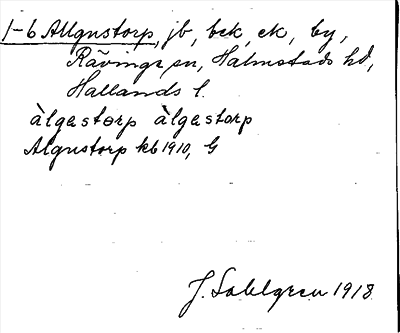 1-6 Allgustorp, jb, bck, ck, by,
Rävinge sn, Halmstads hd,
Hallands l.
àlgestorp àlgestorp
Algustorp kb 1910, G
J. Sahlgren 1918